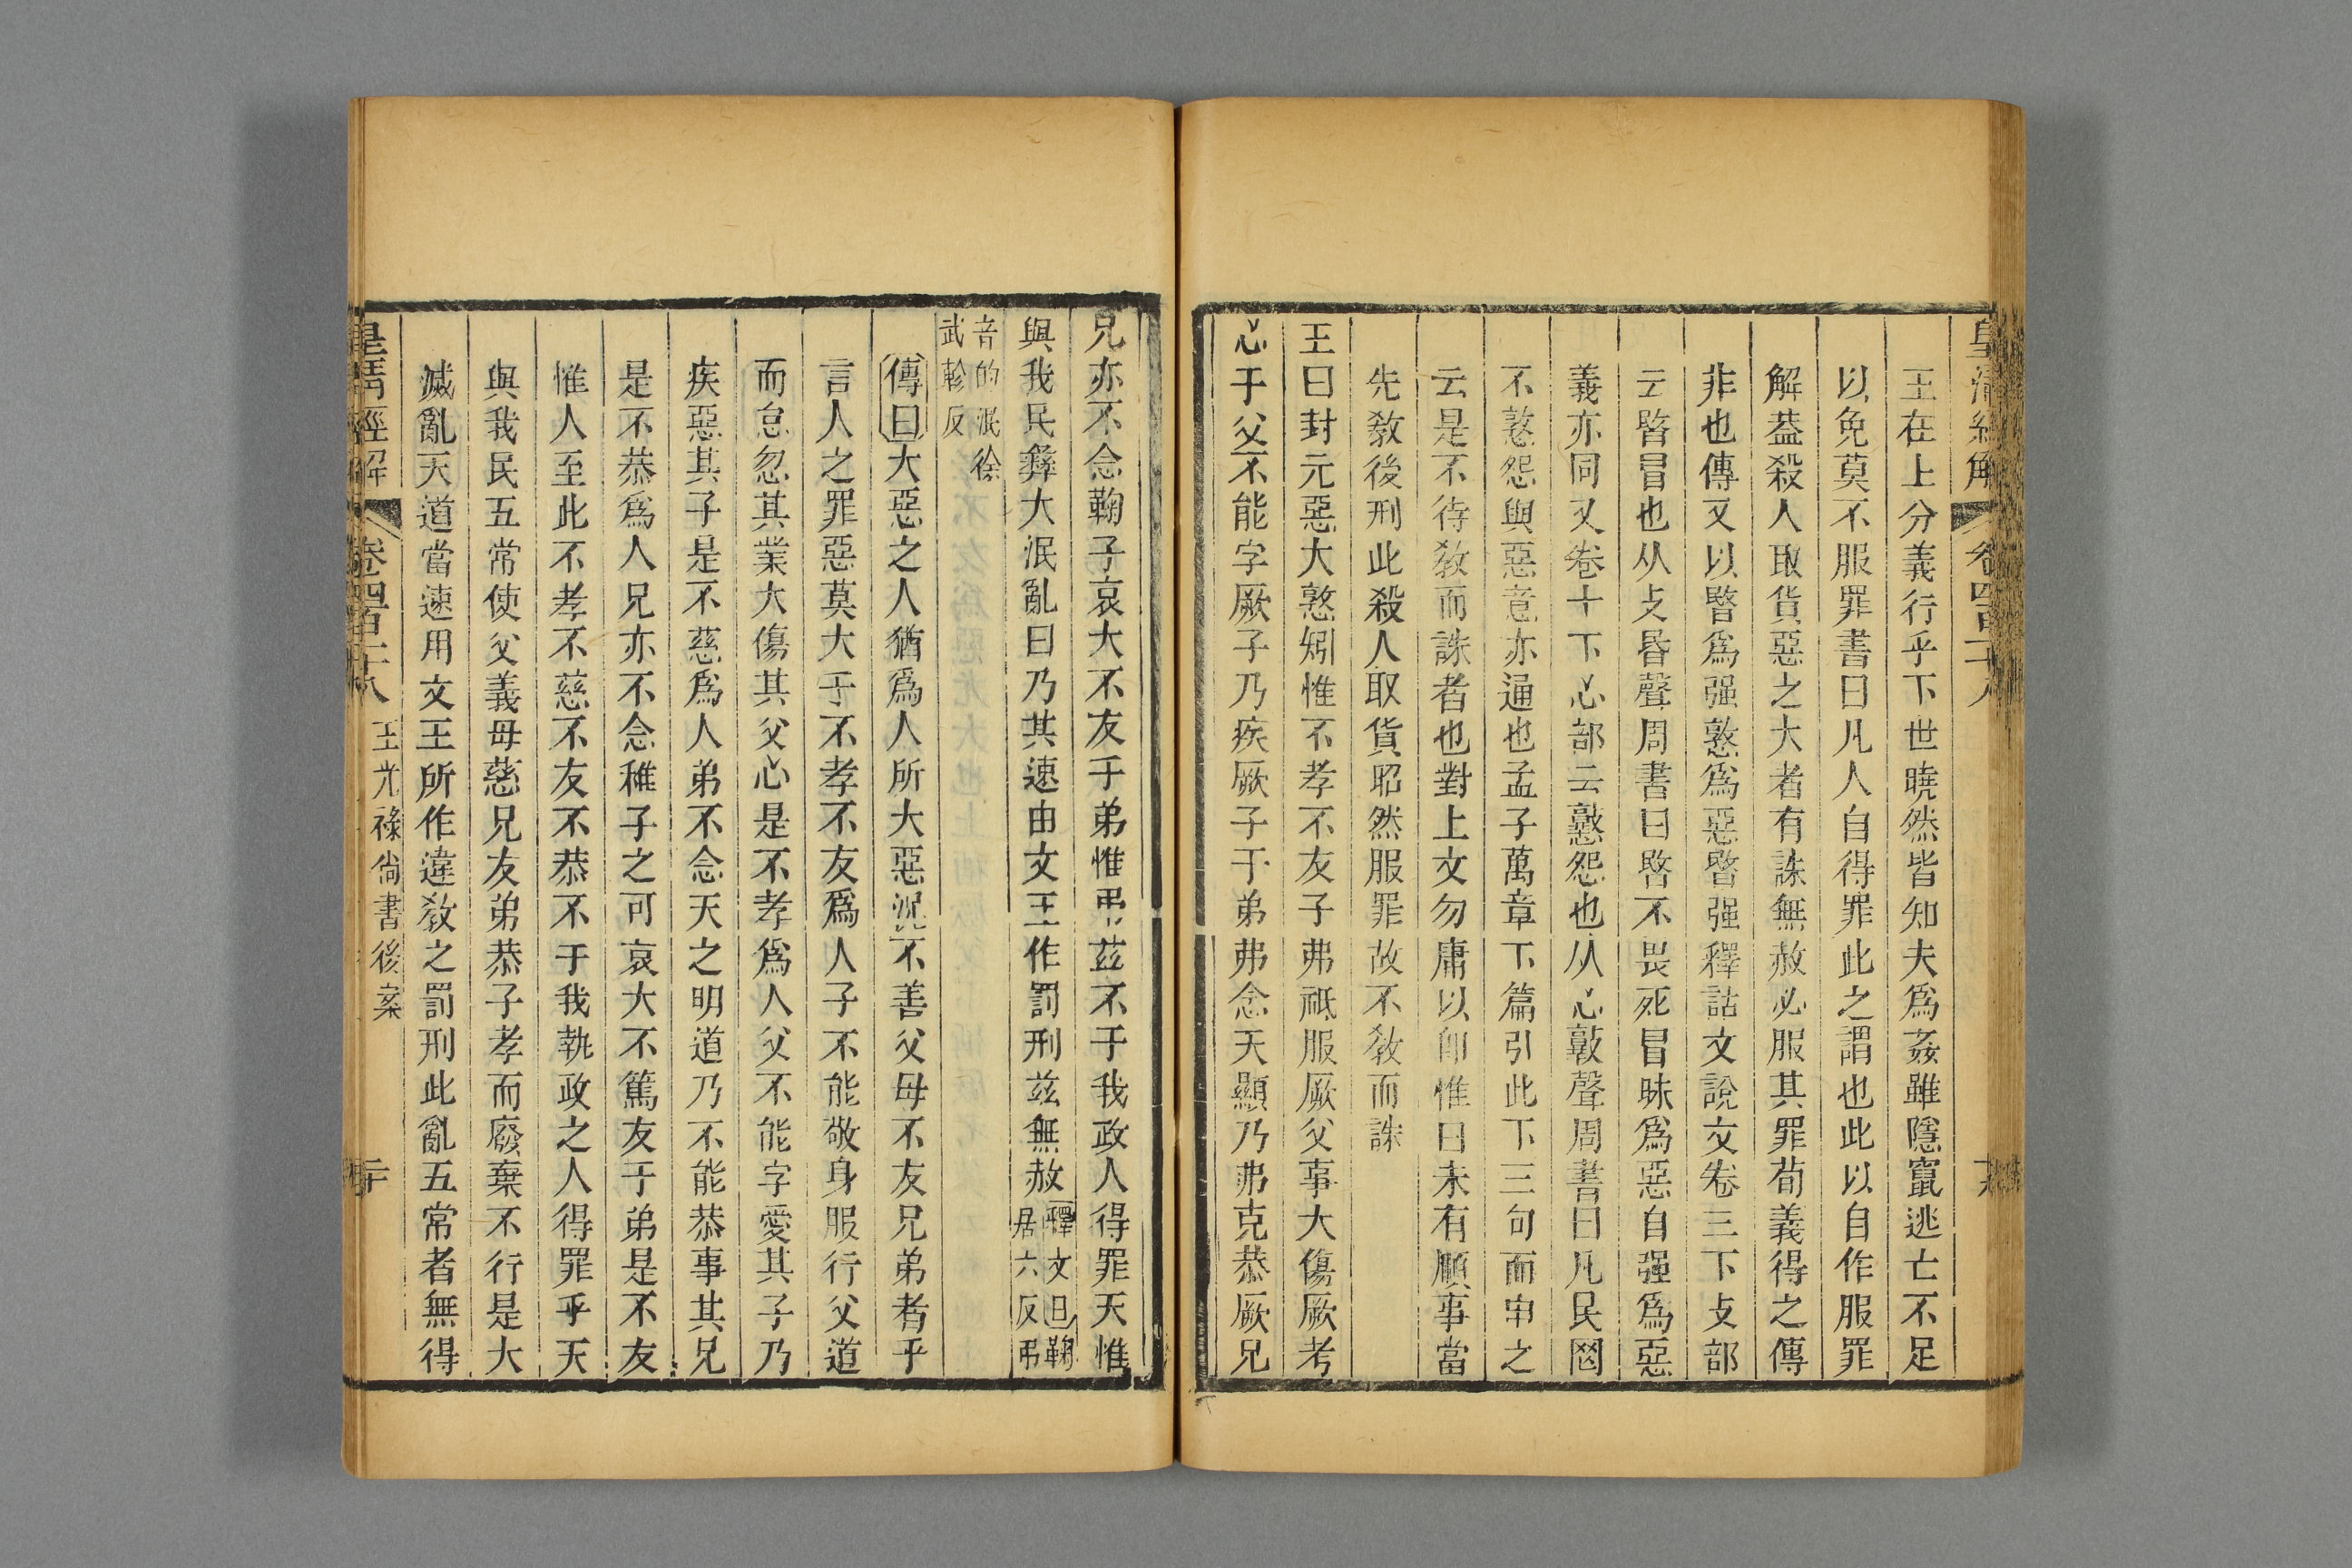 王在上分義行乎下世曉然皆知夫爲姦雖隱竄逃亡不足
以免莫不服罪書曰凡人自得罪此之謂也此以自作服罪
解葢殺人取貨惡之大者有誅無赦必服其罪荀義得之傳
非也傳又以暋爲强憝爲惡暋强釋詁文說文卷三下攴部
云暋冒也从攴昬聲周書曰暋不畏死冒昧爲惡自强爲惡
義亦同又卷十下心部云憝怨也从心敦聲周書曰凡民罔
不憝怨與惡意亦通也孟子萬章下篇引此下三句而申之
云是不待敎而誅者也對上文勿庸以卽惟曰未有順事當
先敎後刑此殺人取貨昭然服罪故不敎而誅
王曰封元惡大憝矧惟不孝不友子弗祗服厥父事大傷厥考
心于父不能字厥子乃疾厥子于弟弗念天顯乃弗克恭厥兄
兄亦不念鞠子哀大不友于弟惟弔茲不于我政人得罪天惟
與我民彝大泯亂曰乃其速由文王作罰刑兹無赦釋文曰鞠
居六反弔
音的泯徐
武軫反
傳曰大惡之人猶爲人所大惡況不善父母不友兄弟者乎
言人之罪惡莫大于不孝不友爲人子不能敬身服行父道
而怠忽其業大傷其父心是不孝爲人父不能字愛其子乃
疾惡其子是不慈爲人弟不念天之明道乃不能恭事其兄
是不恭爲人兄亦不念稚子之可哀大不篤友于弟是不友
惟人至此不孝不慈不友不恭不于我執政之人得罪乎天
與我民五常使父義母慈兄友弟恭子孝而廢棄不行是大
滅亂天道當速用文王所作違敎之罰刑此亂五常者無得
皇淸經解 卷四百二十八 王光祿尙書後案